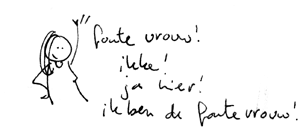 foute vrouw!
ikke!
ja hier!
ik ben de foute vrouw!